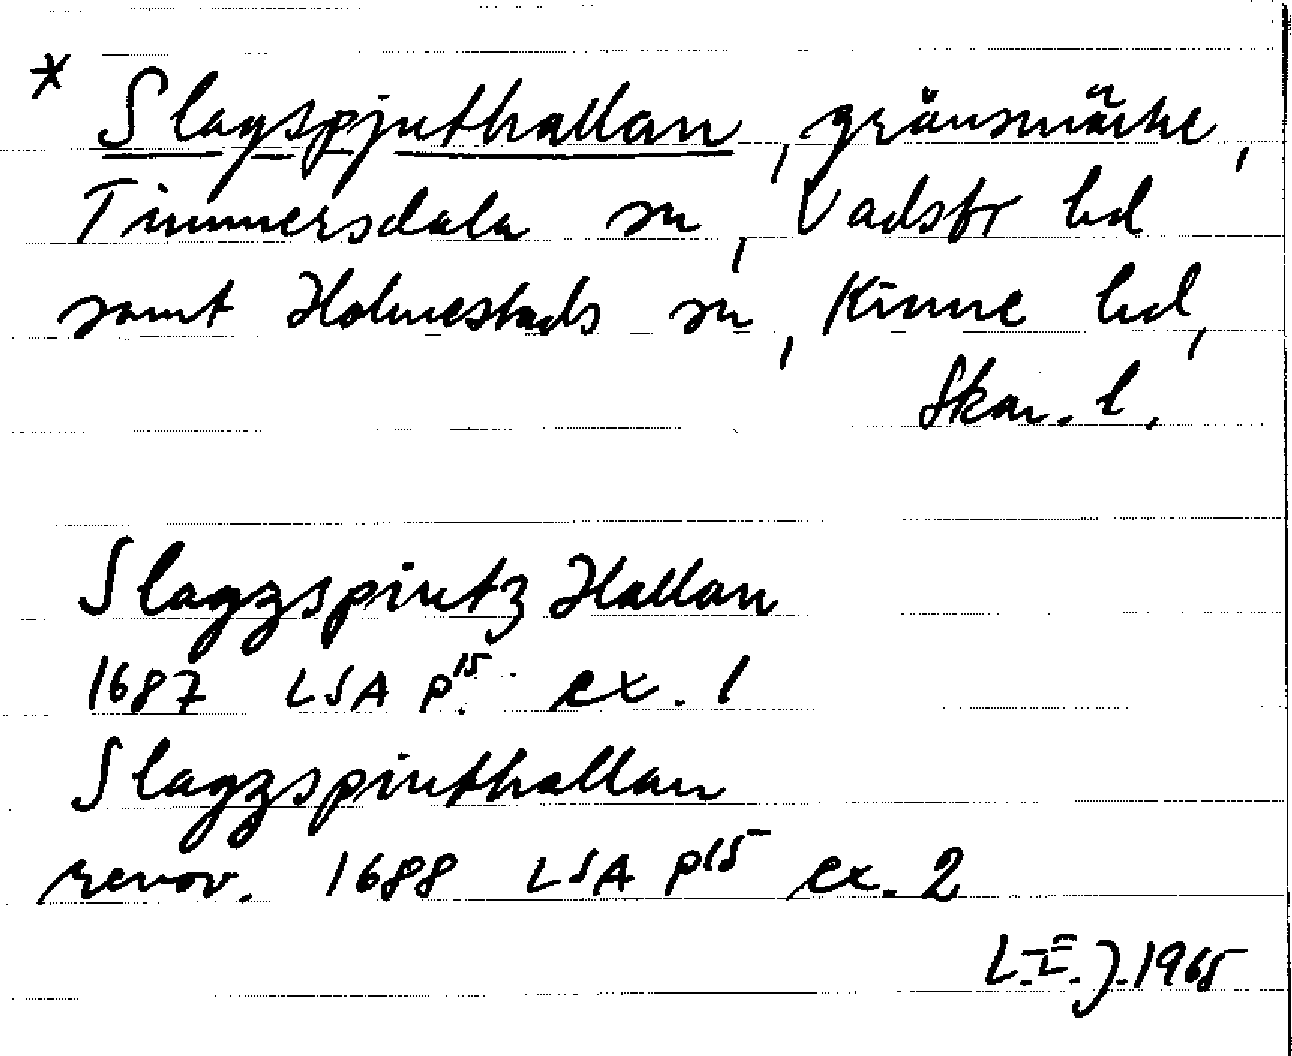 * Slagspjuthallan, gränsmärke,
Timmersdala sn, Vadsbr hd
samt Holmestads sn, Kinne hd,
Skar. l.
Slagzspiutz Hallan
1687 LSA P15 ex. 1
Slagzspiuthallan
renov. 1688 LSA P15 ex. 2
L.E.J. 1965